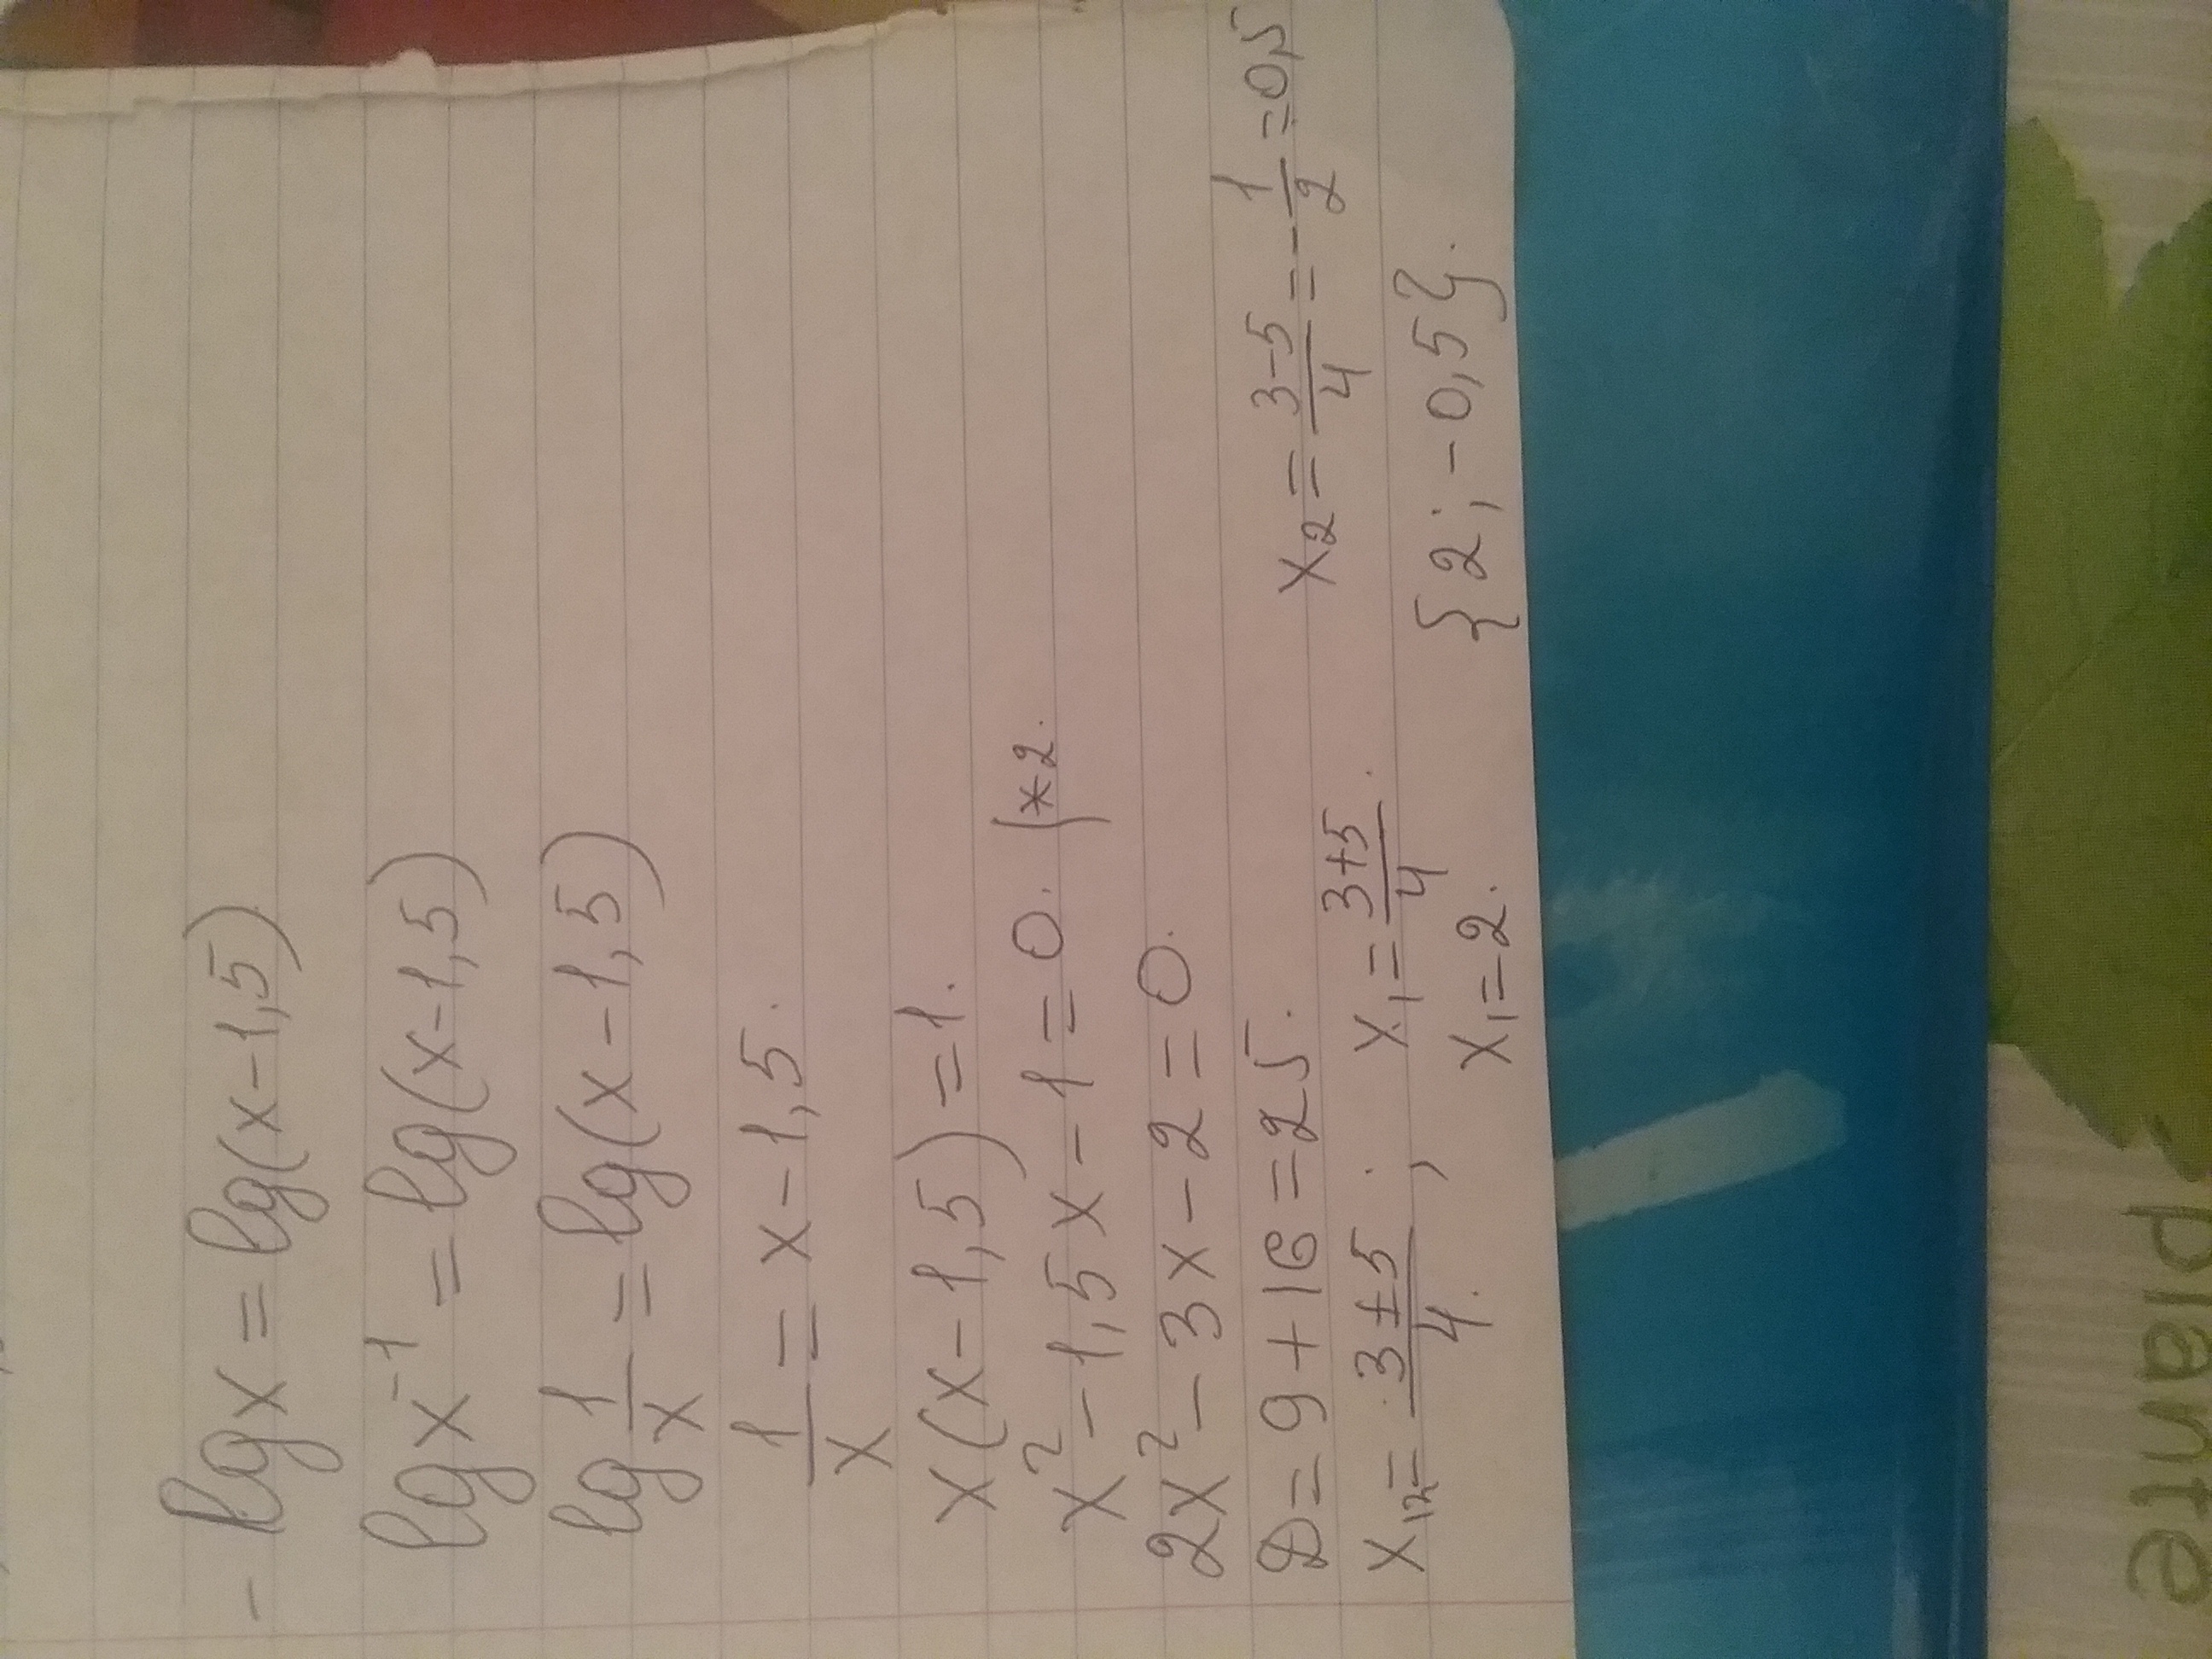 - lg x = lg(x-1,5)
lg x⁻¹ = lg(x-1,5)
lg 1/x = lg(x-1,5)
1/x = x-1,5.
x(x-1,5) = 1.
x² - 1,5x - 1 = 0. |*2.
2x² - 3x - 2 = 0.
D = 9 + 16 = 25.
x₁,₂ = (3 ± 5)/4. , x₁ = (3+5)/4. x₂ = (3-5)/4 = -1/2 = 0,5
x₁ = 2. {2; -0,5}.
plante